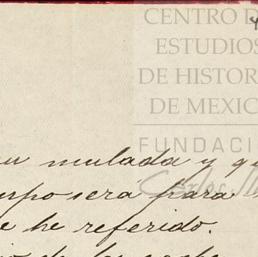 CENTRO D
ESTUDIOS
DE HISTOR
DE MEXIC
FUNDACI
Carlos Sl
su mulada y q
erpo sera para
e he referido.